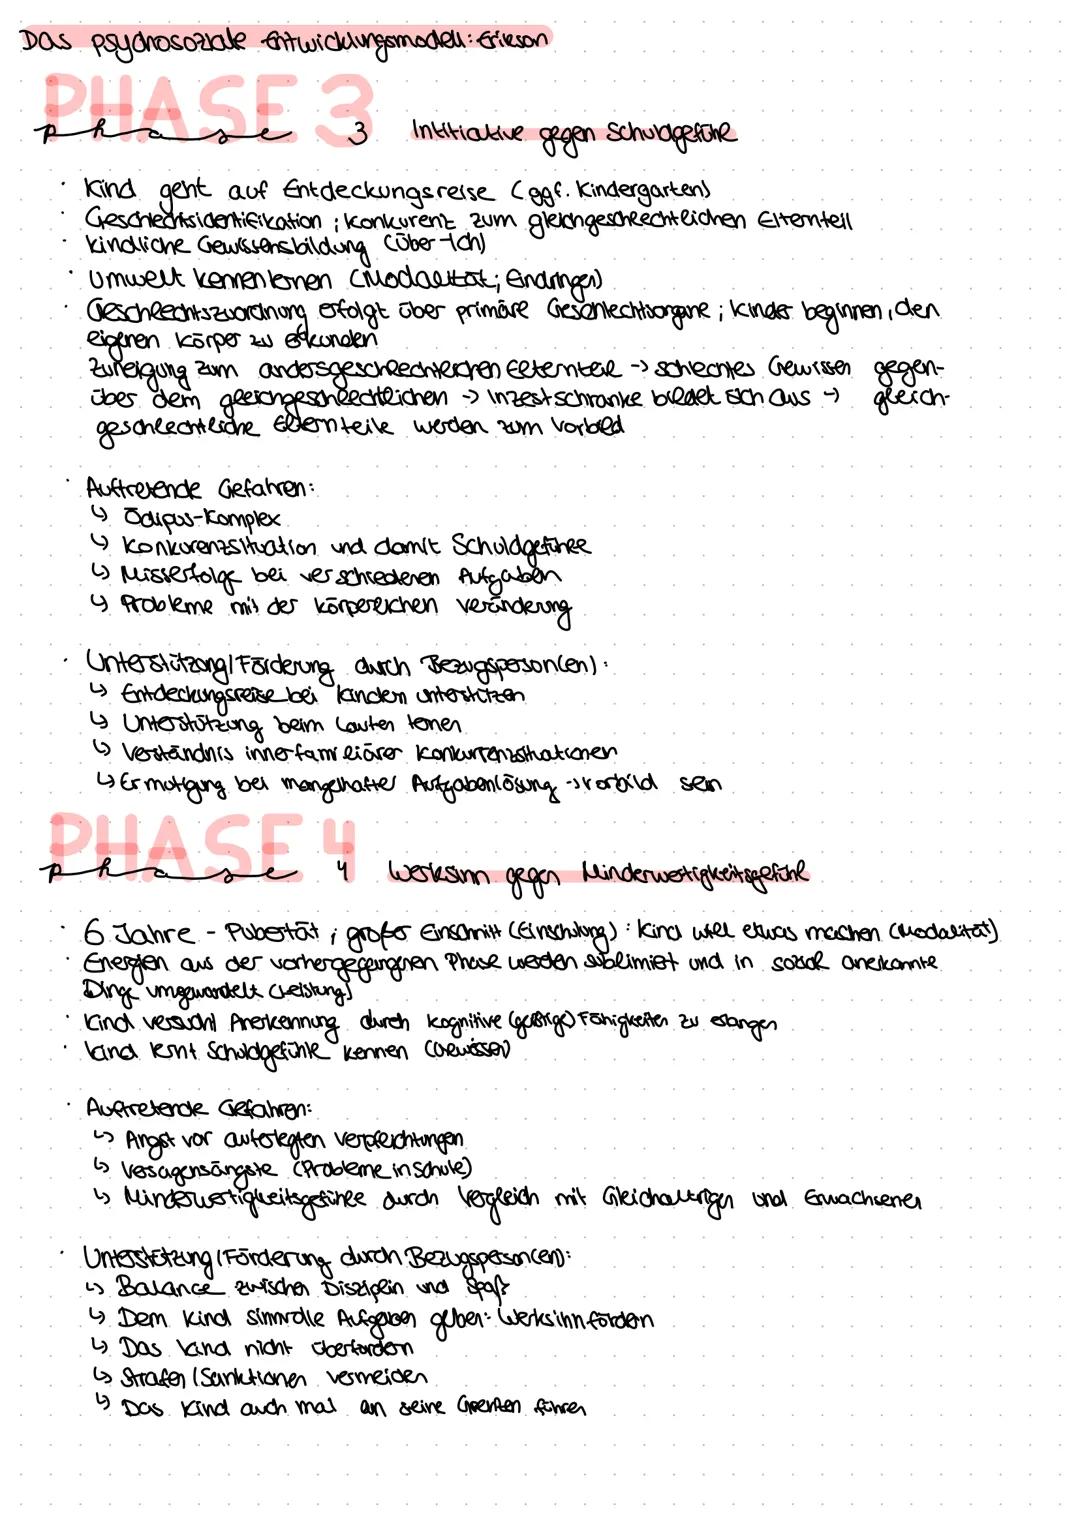 Das psychosoziale Entwicklungsmodell: Erikson
PHASE 3
phase 3 Intitiative gegen Schuldgefühl
· Kind geht auf Entdeckungsreise (ggf. Kindergarten)
· Geschlechtsidentifikation ; Konkurenz zum gleichgeschlechtlichen Elternteil
· kindliche Gewissensbildung (Über-Ich)
· Umwelt kennenlernen (Modalität; Eindringen)
· Geschlechtszuordnung erfolgt über primäre Geschlechtsorgane ; Kinder beginnen, den
eigenen Körper zu erkunden
Zuneigung zum andersgeschlechtlichen Elternteil -> schlechtes Gewissen gegen-
über dem gleichgeschlechtlichen -> Inzestschranke bildet sich aus -> gleich-
geschlechtliche Elternteile werden zum Vorbild
· Auftretende Gefahren:
↳ Ödipus-Komplex
↳ Konkurenzsituation und damit Schuldgefühle
↳ Misserfolge bei verschiedenen Aufgaben
↳ Probleme mit der körperlichen Veränderung
· Unterstützung/Förderung durch Bezugsperson(en):
↳ Entdeckungsreise bei Kindern unterstützen
↳ Unterstützung beim Laufen lernen
↳ Verständnis innerfamiliärer Konkurrenzsituationen
↳ Ermutigung bei mangelhafter Aufgabenlösung -> Vorbild sein
PHASE 4
phase 4 Werksinn gegen Minderwertigkeitsgefühl
· 6 Jahre - Pubertät ; großer Einschnitt (Einschulung) : Kind will etwas machen (Modalität)
· Energien aus der vorhergegangenen Phase werden sublimiert und in sozial anerkannte
Dinge umgewandelt (Leistung)
· Kind versucht Anerkennung durch kognitive (geistige) Fähigkeiten zu erlangen
· Kind lernt Schuldgefühle kennen (Gewissen)
· Auftretende Gefahren:
↳ Angst vor auferlegten Verpflichtungen
↳ Versagensängste (Probleme in Schule)
↳ Minderwertigkeitsgefühle durch Vergleich mit Gleichaltrigen und Erwachsenen
· Unterstützung/Förderung durch Bezugsperson(en):
↳ Balance zwischen Disziplin und Spaß
↳ Dem Kind sinnvolle Aufgaben geben: Werksinn fördern
↳ Das Kind nicht überfordern
↳ Strafen/Sanktionen vermeiden
↳ Das Kind auch mal an seine Grenzen führen